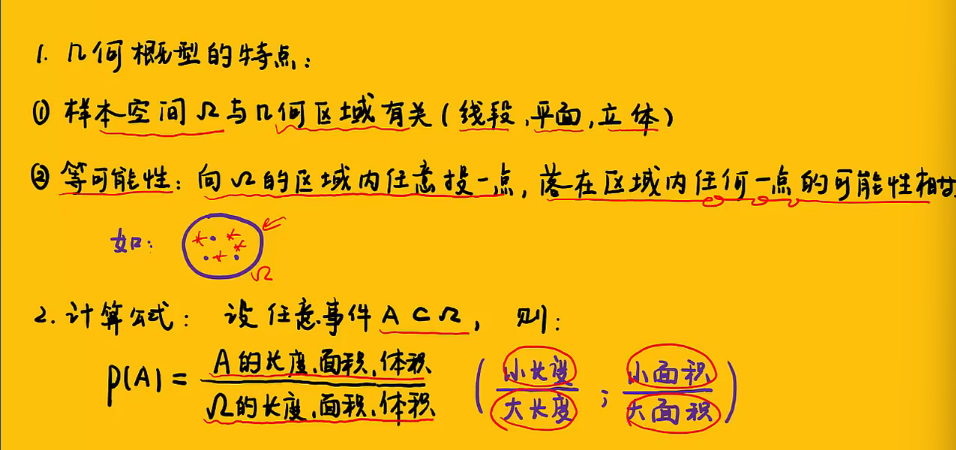 1. 几何概型的特点：
① 样本空间Ω与几何区域有关（线段，平面，立体）
② 等可能性：向Ω的区域内任意投一点，落在区域内任何一点的可能性相
如：
Ω
2. 计算公式：设任意事件A⊂Ω，则：
P(A) = A的长度、面积、体积 / Ω的长度、面积、体积 （小长度 / 大长度；小面积 / 大面积）